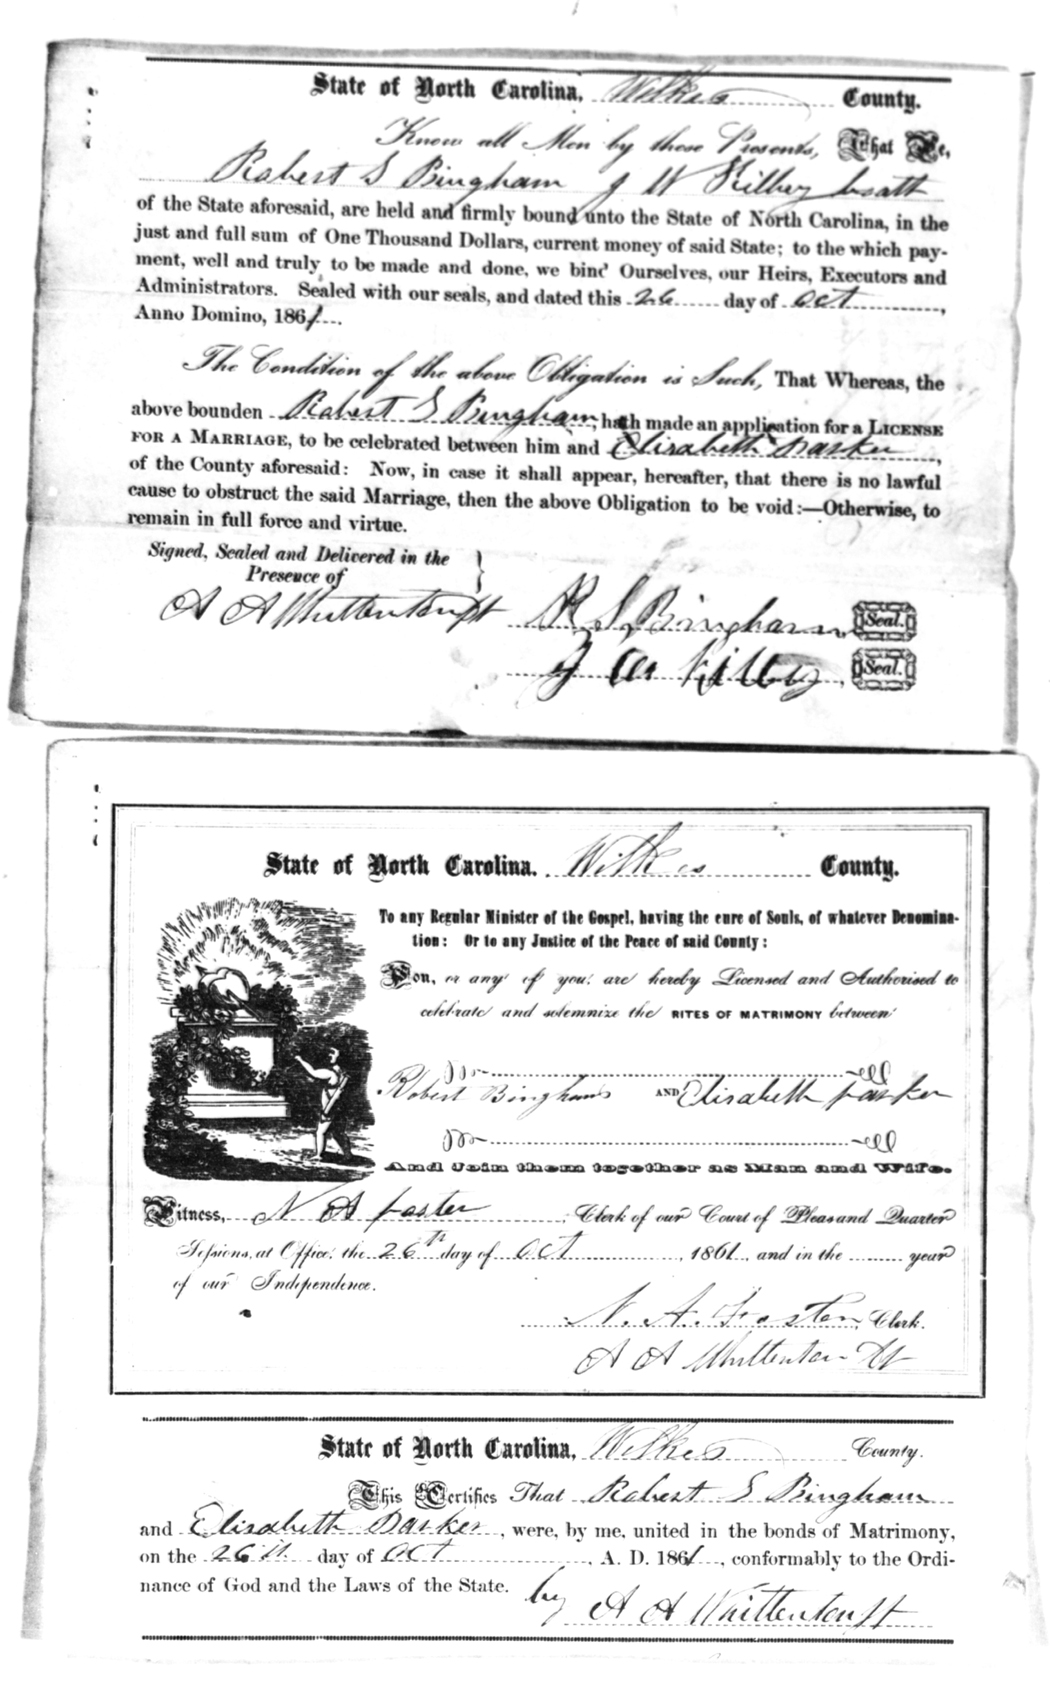 State of North Carolina, Wilkes County.
Know all Men by these Presents, That We,
Robert S Bingham J W Kilby
of the State aforesaid, are held and firmly bound unto the State of North Carolina, in the
just and full sum of One Thousand Dollars, current money of said State; to the which pay-
ment, well and truly to be made and done, we bind Ourselves, our Heirs, Executors and
Administrators. Sealed with our seals, and dated this 26 day of Oct,
Anno Domino, 1861.
The Condition of the above Obligation is Such, That Whereas, the
above bounden Robert S Bingham, hath made an application for a LICENSE
FOR A MARRIAGE, to be celebrated between him and Elisabeth Parker,
of the County aforesaid: Now, in case it shall appear, hereafter, that there is no lawful
cause to obstruct the said Marriage, then the above Obligation to be void:—Otherwise, to
remain in full force and virtue.
Signed, Sealed and Delivered in the
Presence of
A A Whittenton R S Bingham Seal.
J W Kilby Seal.
State of North Carolina. Wilkes County.
To any Regular Minister of the Gospel, having the cure of Souls, of whatever Denomina-
tion: Or to any Justice of the Peace of said County:
You, or any of you, are hereby Licensed and Authorised to
celebrate and solemnize the RITES OF MATRIMONY between
Robert Bingham AND Elisabeth Parker
And Join them together as Man and Wife.
Witness, N A Foster, Clerk of our Court of Pleas and Quarter
Sessions, at Office, the 26th day of Oct, 1861, and in the year
of our Independence.
N. A. Foster, Clerk.
A A Whittenton
State of North Carolina, Wilkes County.
This Certifies That Robert S Bingham
and Elisabeth Parker, were, by me, united in the bonds of Matrimony,
on the 26th day of Oct, A. D. 1861, conformably to the Ordi-
nance of God and the Laws of the State.
by A A Whittenton